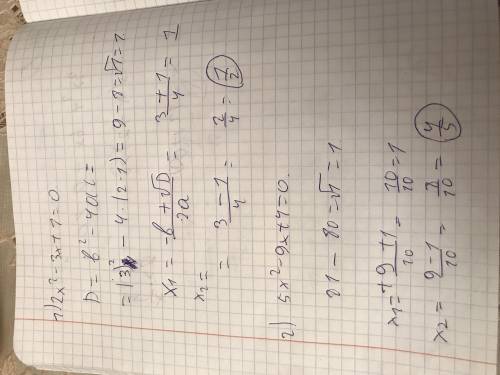 1) 2x² - 3x + 1 = 0
D = b² - 4ac =
= (3)² - 4 · (2 · 1) = 9 - 8 = √1 = 1
x₁ = -b + √D / 2a = 3 + 1 / 4 = 1
x₂ =
= 3 - 1 / 4 = 2/4 = 1/2
2) 5x² - 9x + 4 = 0
81 - 80 = √1 = 1
x₁ = +9 + 1 / 10 = 10/10 = 1
x₂ = 9 - 1 / 10 = 8/10 = 4/5